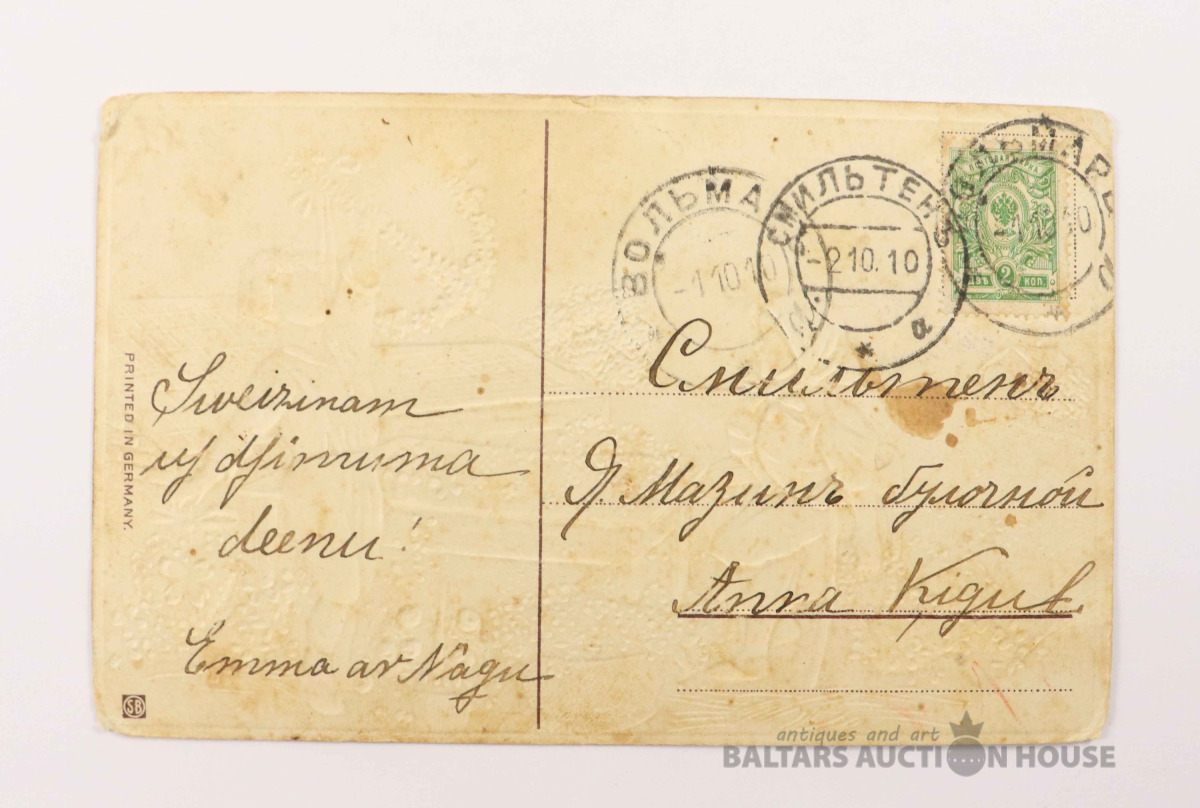 PRINTED IN GERMANY.
Sweizinam
us dsimuma
deenu!
Emma av Nâgu
SB
ВОЛЬМА
-1 10 10
СМИЛЬТЕН
2 10. 10
a
2
КОП.
Смильтенъ
Я. Мазинъ булочной
Anna Ķigut.
antiques and art
BALTARS AUCTION HOUSE